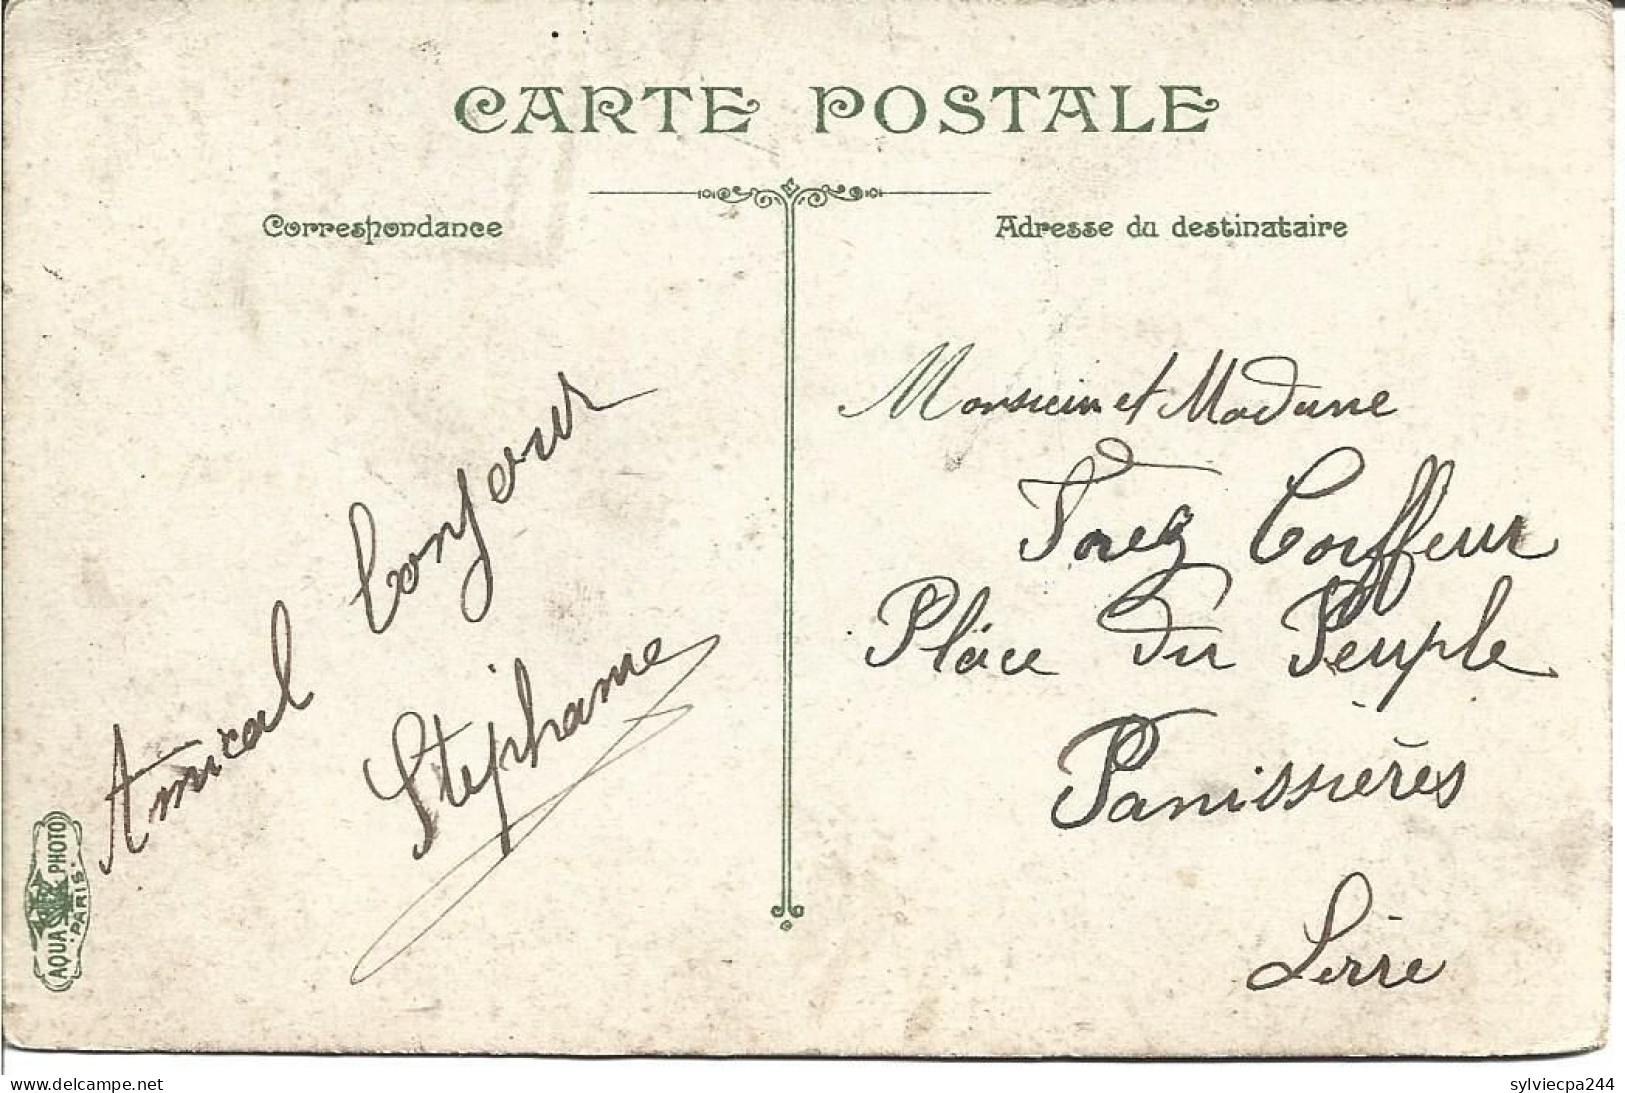 CARTE POSTALE
Correspondance
Adresse du destinataire
Amical bonjour
Stéphane
Monsieur et Madame
Forez Coiffeur
Place du Peuple
Panissières
Loire
AQUA PHOTO
PARIS
website : delcampe.net
sylviecpa244